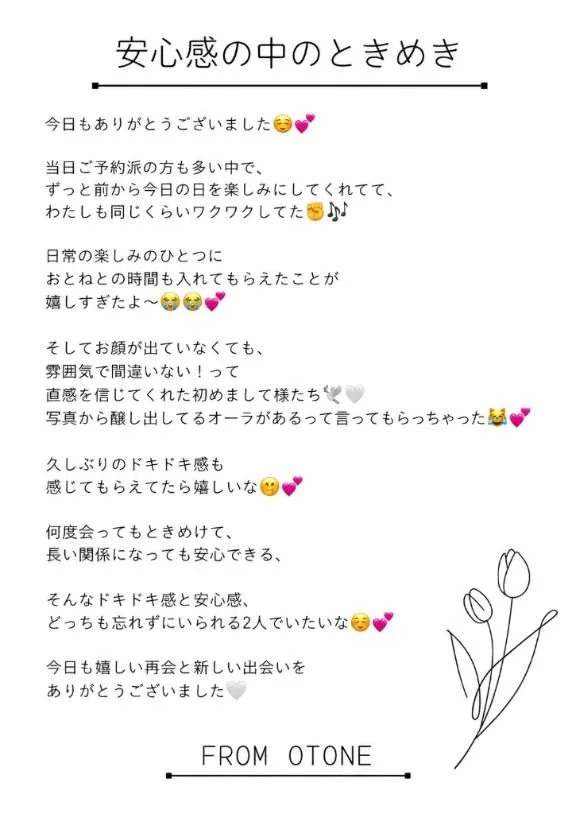 安心感の中のときめき
今日もありがとうございました☺️💕
当日ご予約派の方も多い中で、
ずっと前から今日の日を楽しみにしてくれてて、
わたしも同じくらいワクワクしてた✊🎶
日常の楽しみのひとつに
おとねとの時間も入れてもらえたことが
嬉しすぎたよ〜😭😭💕
そしてお顔が出ていなくても、
雰囲気で間違いない！って
直感を信じてくれた初めまして様たち🕊️🤍
写真から醸し出してるオーラがあるって言ってもらっちゃった😹💕
久しぶりのドキドキ感も
感じてもらえてたら嬉しいな🤭💕
何度会ってもときめけて、
長い関係になっても安心できる、
そんなドキドキ感と安心感、
どっちも忘れずにいられる2人でいたいな☺️💕
今日も嬉しい再会と新しい出会いを
ありがとうございました🤍
FROM OTONE